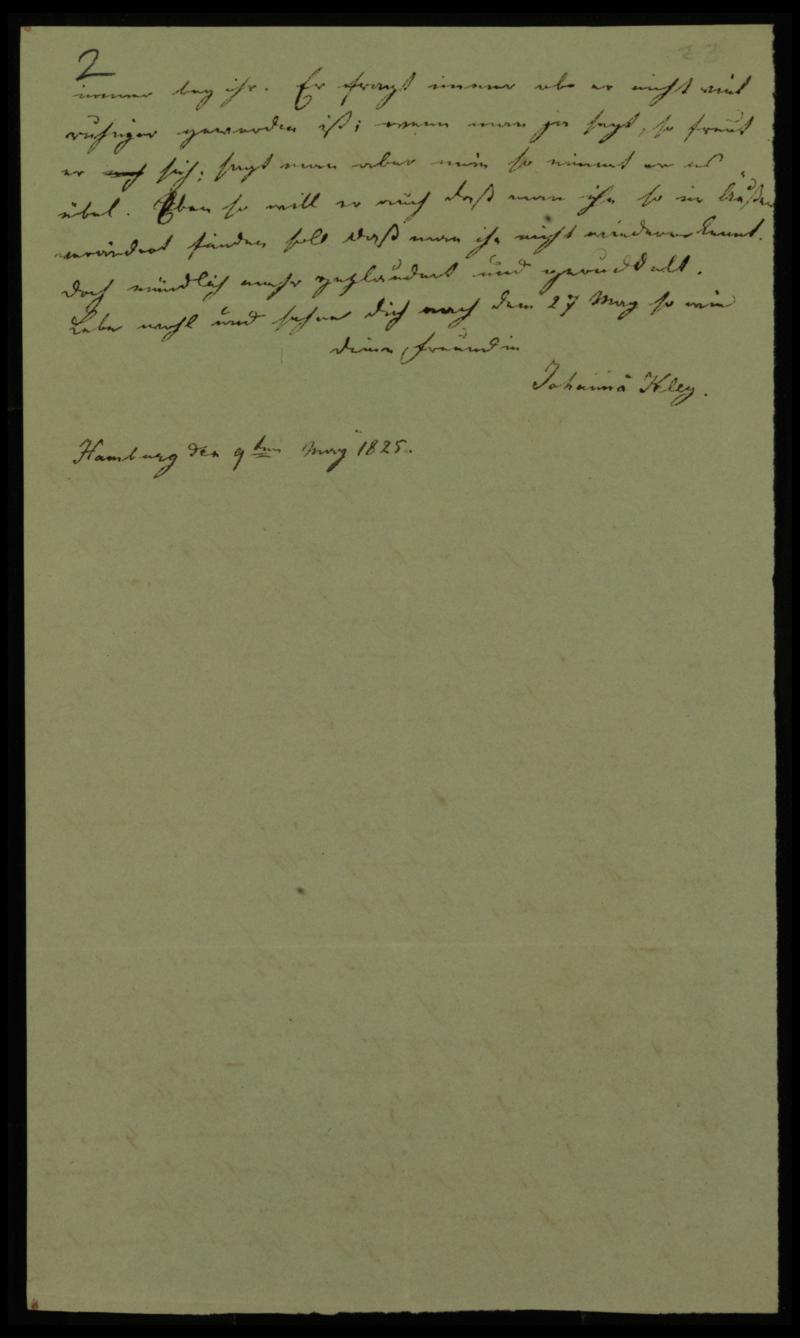 2
immer bey ihr. Er fragt immer ob er nicht viel
ruhiger geworden ist; wenn man ja sagt, so freut
er sich; sagt man aber nein so nimmt er es
übel. Eben so will er auch daß man ihn so im Äußern
verändert finden soll daß man ihn nicht wiedererkennt.
Doch mündlich mehr geplaudert und geruddelt.
Lebe wohl und sehne dich nach dem 27 May so wie
deine Freundin
Johanna Kley.
Hamburg den 9ten May 1825.